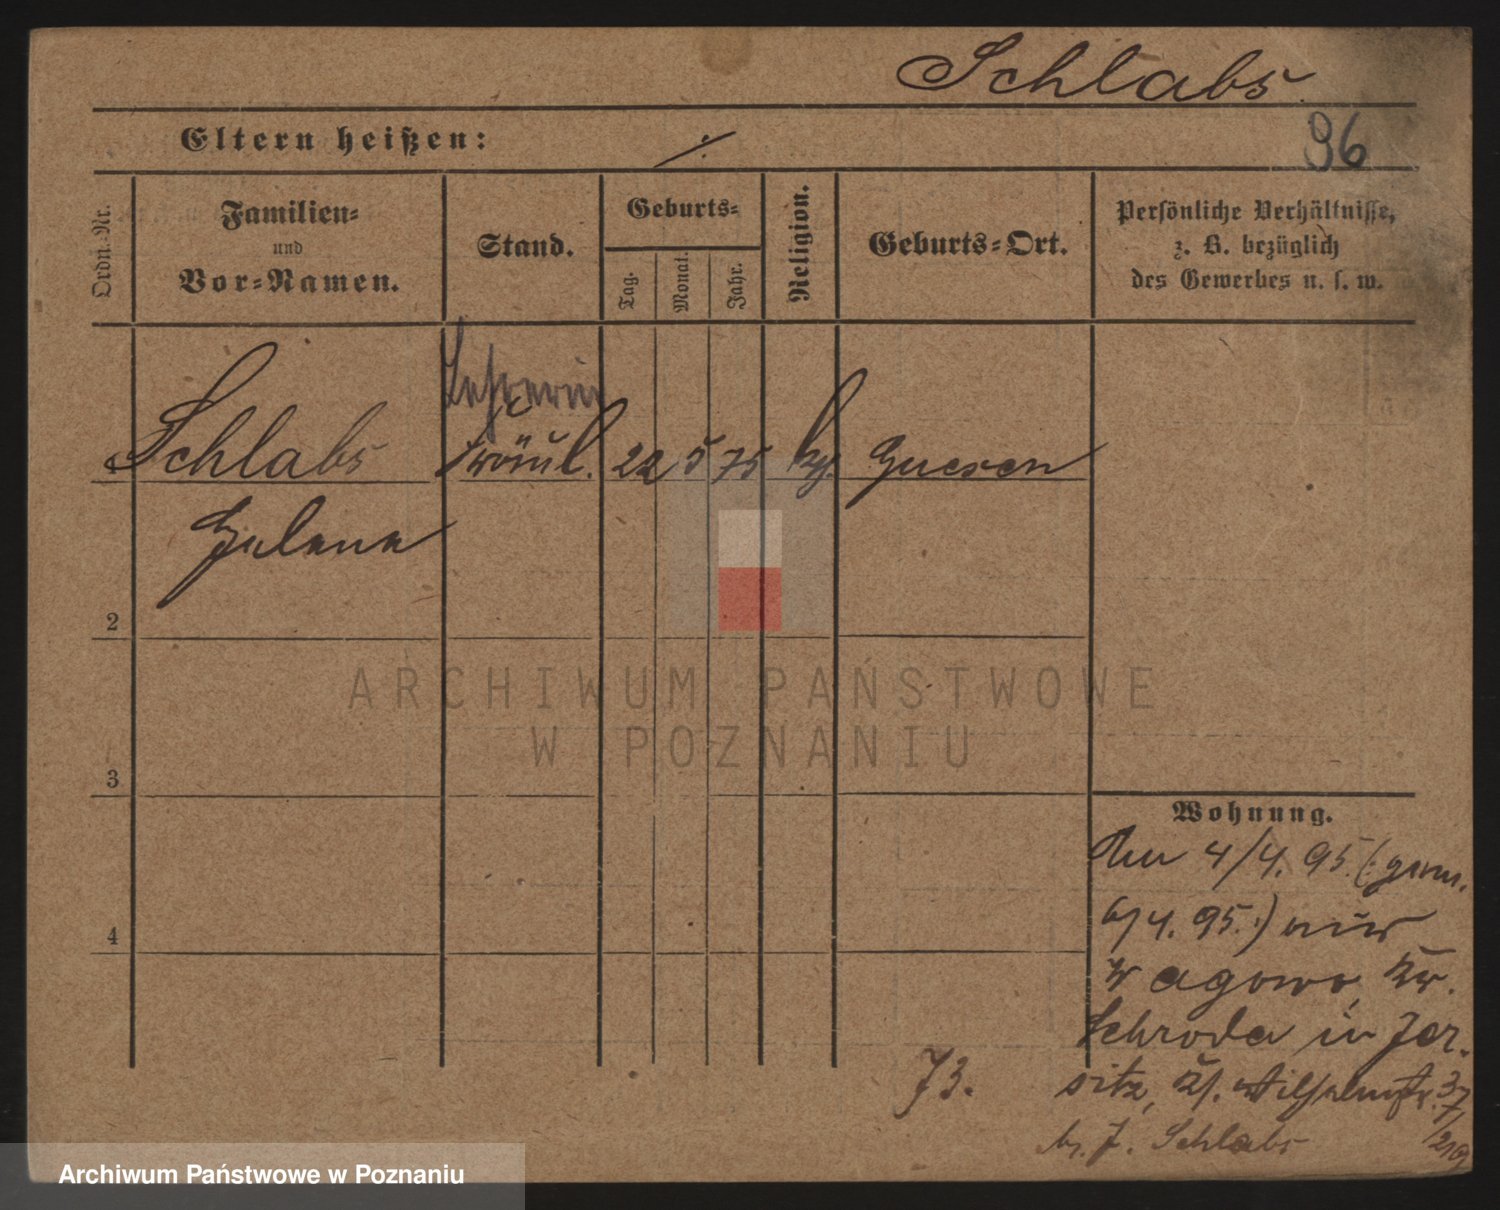 Schlabs
Eltern heißen: ·/·
96
Ordn.-Nr.
Familien-
und
Vor-Namen.
Stand.
Geburts-
Tag.
Monat.
Jahr.
Religion.
Geburts-Ort.
Persönliche Verhältnisse,
z. B. bezüglich
des Gewerbes u. s. w.
Lehrerin
1 Schlabs 22 5 75 Gnesen
Helene
2
ARCHIWUM PAŃSTWOWE
W POZNANIU
3
Wohnung.
4/4. 95.
6/4. 95.)
4
Schroda in Jer-
sitz, Wilhelmstr. 37
73.
Schlabs
Archiwum Państwowe w Poznaniu